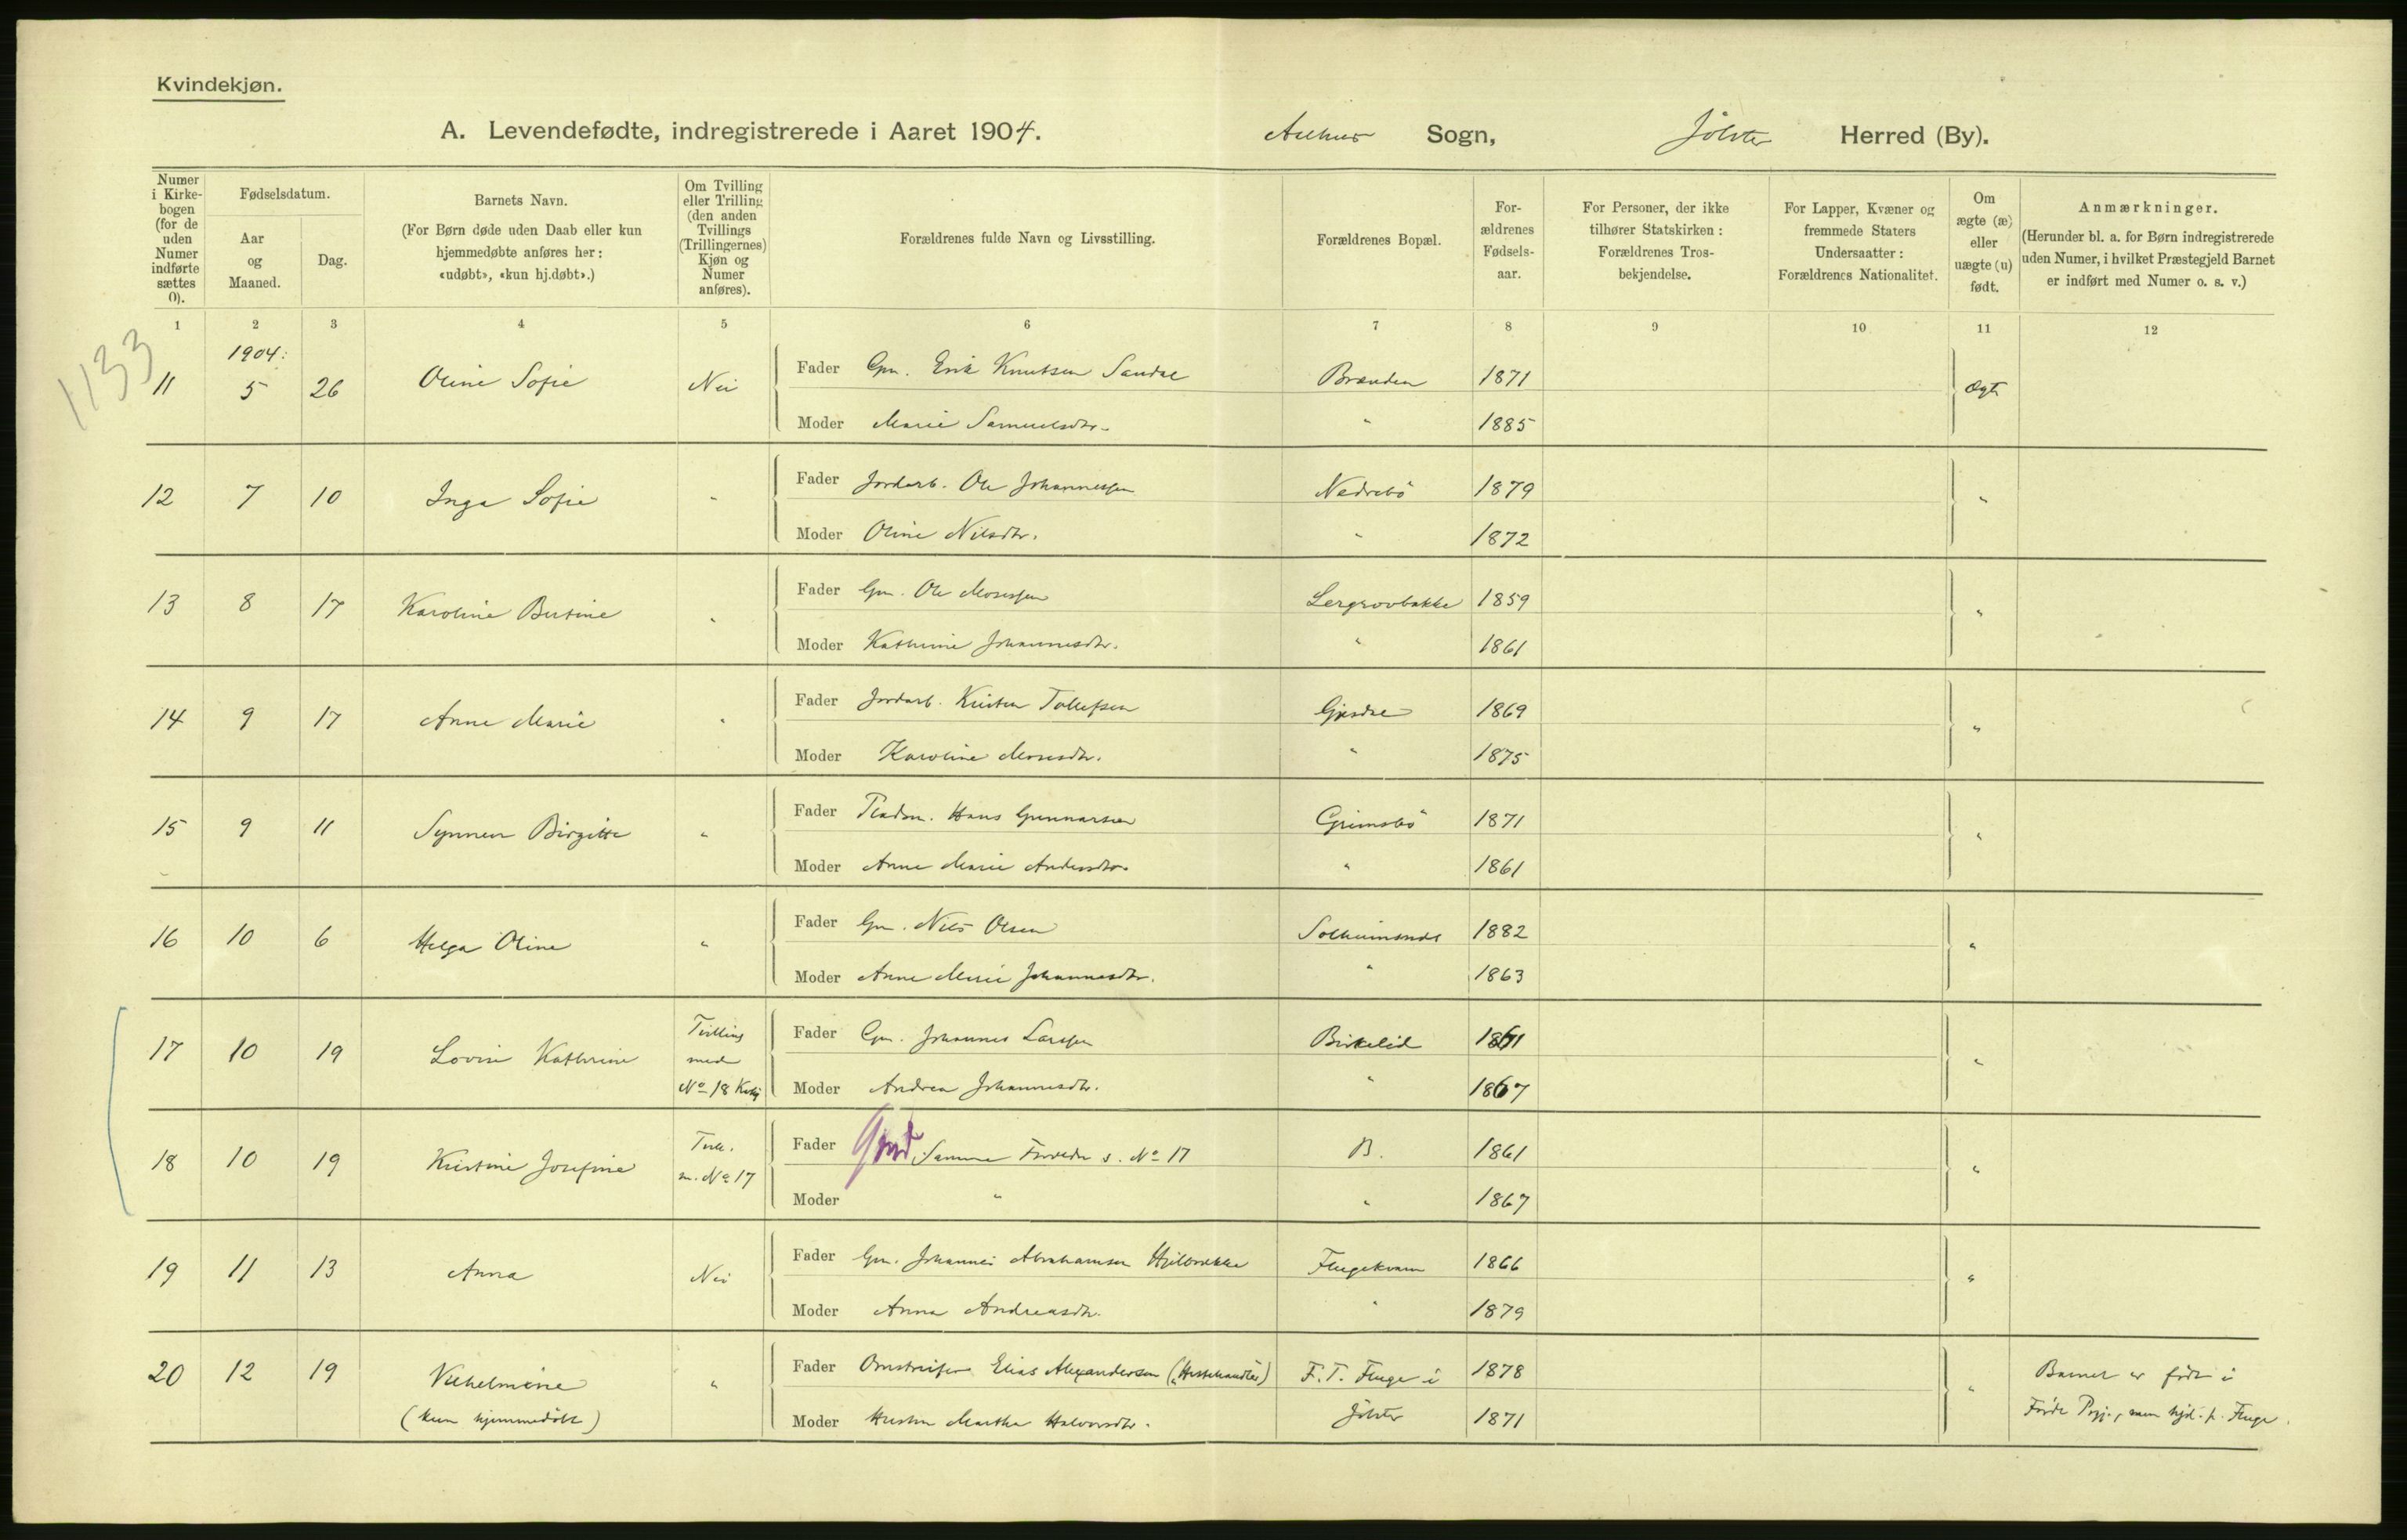 Kvindekjøn.
A. Levendefødte, indregistrerede i Aaret 1904. Aalhus Sogn, Jölster Herred (By).
Numer i Kirkebogen (for de uden Numer indførte sættes 0).
Fødselsdatum.
Aar og Maaned.
Dag.
Barnets Navn.
(For Børn døde uden Daab eller kun hjemmedøbte anføres her: «udøbt», «kun hj.døbt».)
Om Tvilling eller Trilling (den anden Tvillings (Trillingernes) Kjøn og Numer anføres).
Forældrenes fulde Navn og Livsstilling.
Forældrenes Bopæl.
Forældrenes Fødselsaar.
For Personer, der ikke tilhører Statskirken: Forældrenes Trosbekjendelse.
For Lapper, Kvæner og fremmede Staters Undersaatter: Forældrenes Nationalitet.
Om ægte (æ) eller uægte (u) født.
Anmærkninger.
(Herunder bl. a. for Børn indregistrerede uden Numer, i hvilket Præstegjeld Barnet er indført med Numer o. s. v.)
1 2 3 4 5 6 7 8 9 10 11 12
1133
1904:
11 5 26 Oline Sofie Nei Fader Gm. Erik Knutsen Sandal Brænden 1871 Ægte
Moder Marie Samuelsdtr. " 1885
12 7 10 Inga Sofie " Fader Jordarb. Ole Johannessen Nedrebö 1879 "
Moder Oline Nilsdtr. " 1872
13 8 17 Karoline Bertine " Fader Gm. Ole Mosessen Lergrovbakke 1859 "
Moder Kathrine Johannesdtr. " 1861
14 9 17 Anne Marie " Fader Jordarb. Kristen Tollefsen Gjesdal 1869 "
Moder Karoline Mosesdtr. " 1875
15 9 11 Synneva Birgitte " Fader Pladsm. Hans Gunnarsen Grimsbö 1871 "
Moder Anne Marie Andersdtr. " 1861
16 10 6 Helga Oline " Fader Gm. Nils Olsen Solheimsnde 1882 "
Moder Anne Marie Johannesdtr. " 1863
17 10 19 Lovise Kathrine Tvilling med No 18 Fader Gm. Johannes Larssen Birkelid 1861 "
Moder Andrea Johannesdtr. " 1867
18 10 19 Kristine Josefine Tvill. m. No 17 Fader Samme Forældre s. No 17 B. 1861 "
Moder " " 1867
19 11 13 Anna Nei Fader Gm. Johannes Abrahamsen Flugekvam 1866 "
Moder Anna Andreasdtr. " 1879
20 12 19 Vilhelmine " Fader Omstreifer Elias Alexandersen (Hestehandler) F. T. Fluge i 1878 " Barnet er födt i
(kun hjemmedöbt) Moder Hustru Martha Halvorsdtr. Jölster 1871 Förde Prgj., men hjd. p. Fluge.